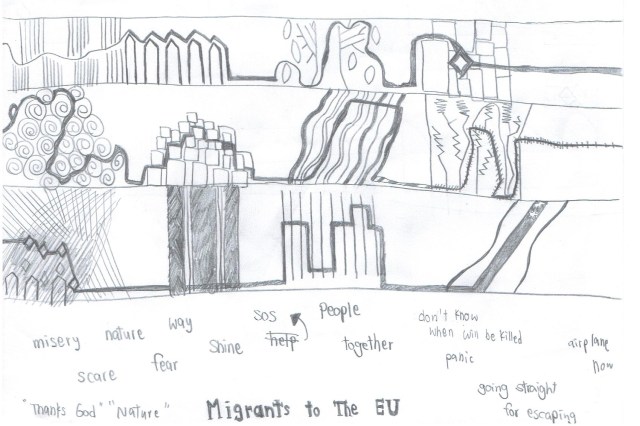 SOS People don't know
misery nature way when i will be killed
shine help together airplane
fear panic now
scare going straight
"Thanks God" "Nature" Migrants to The EU for escaping